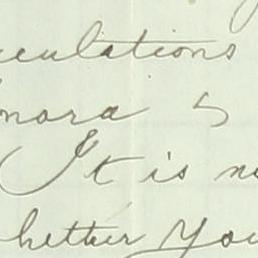 culations
nora 5
It is no
hether you